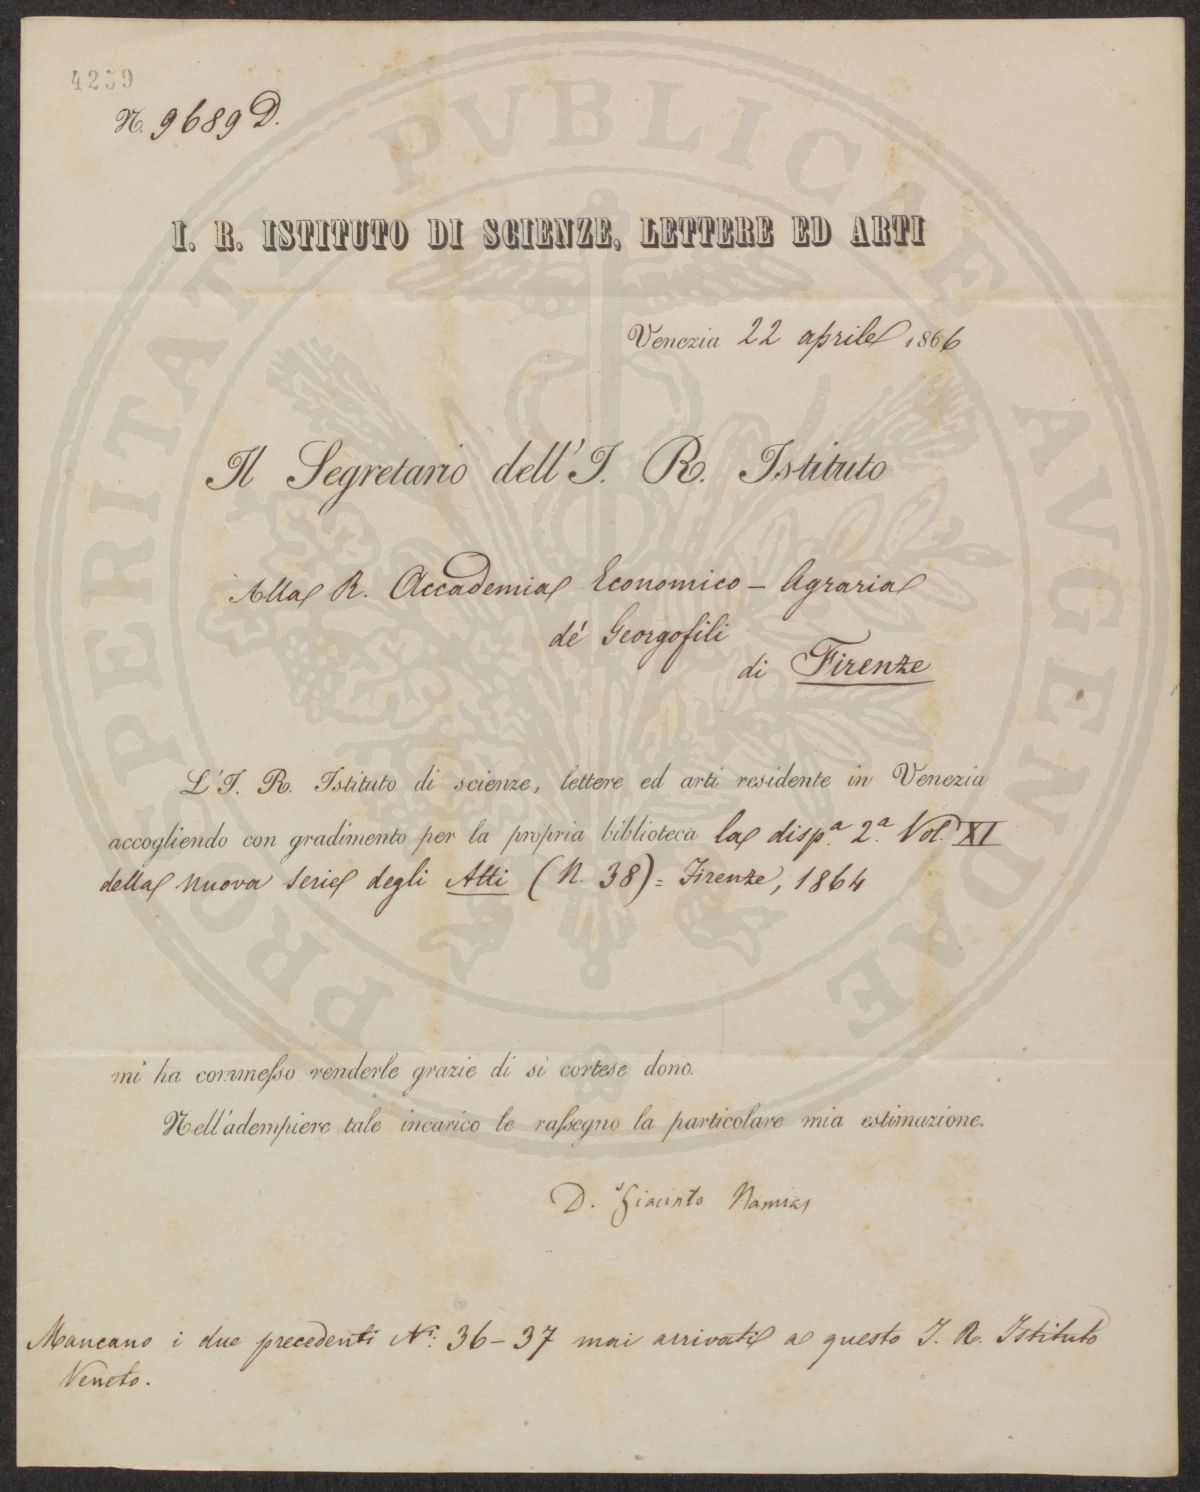 4259
N. 9689 D.
I. R. ISTITUTO DI SCIENZE, LETTERE ED ARTI
Venezia 22 aprile 1866
Il Segretario dell'I. R. Istituto
Alla R. Accademia Economico - Agraria
dé Georgofili
di Firenze
L'I. R. Istituto di scienze, lettere ed arti residente in Venezia
accogliendo con gradimento per la propria biblioteca la dispa. 2a. Vol. XI
della nuova serie degli Atti (N. 38) = Firenze, 1864
mi ha commesso renderle grazie di sì cortese dono.
Nell'adempiere tale incarico le rassegno la particolare mia estimazione.
D. Giacinto Namias
Mancano i due precedenti Ni. 36-37 mai arrivati a questo I. R. Istituto
Veneto.
PROSPERITATI PVBLICAE AVGENDAE